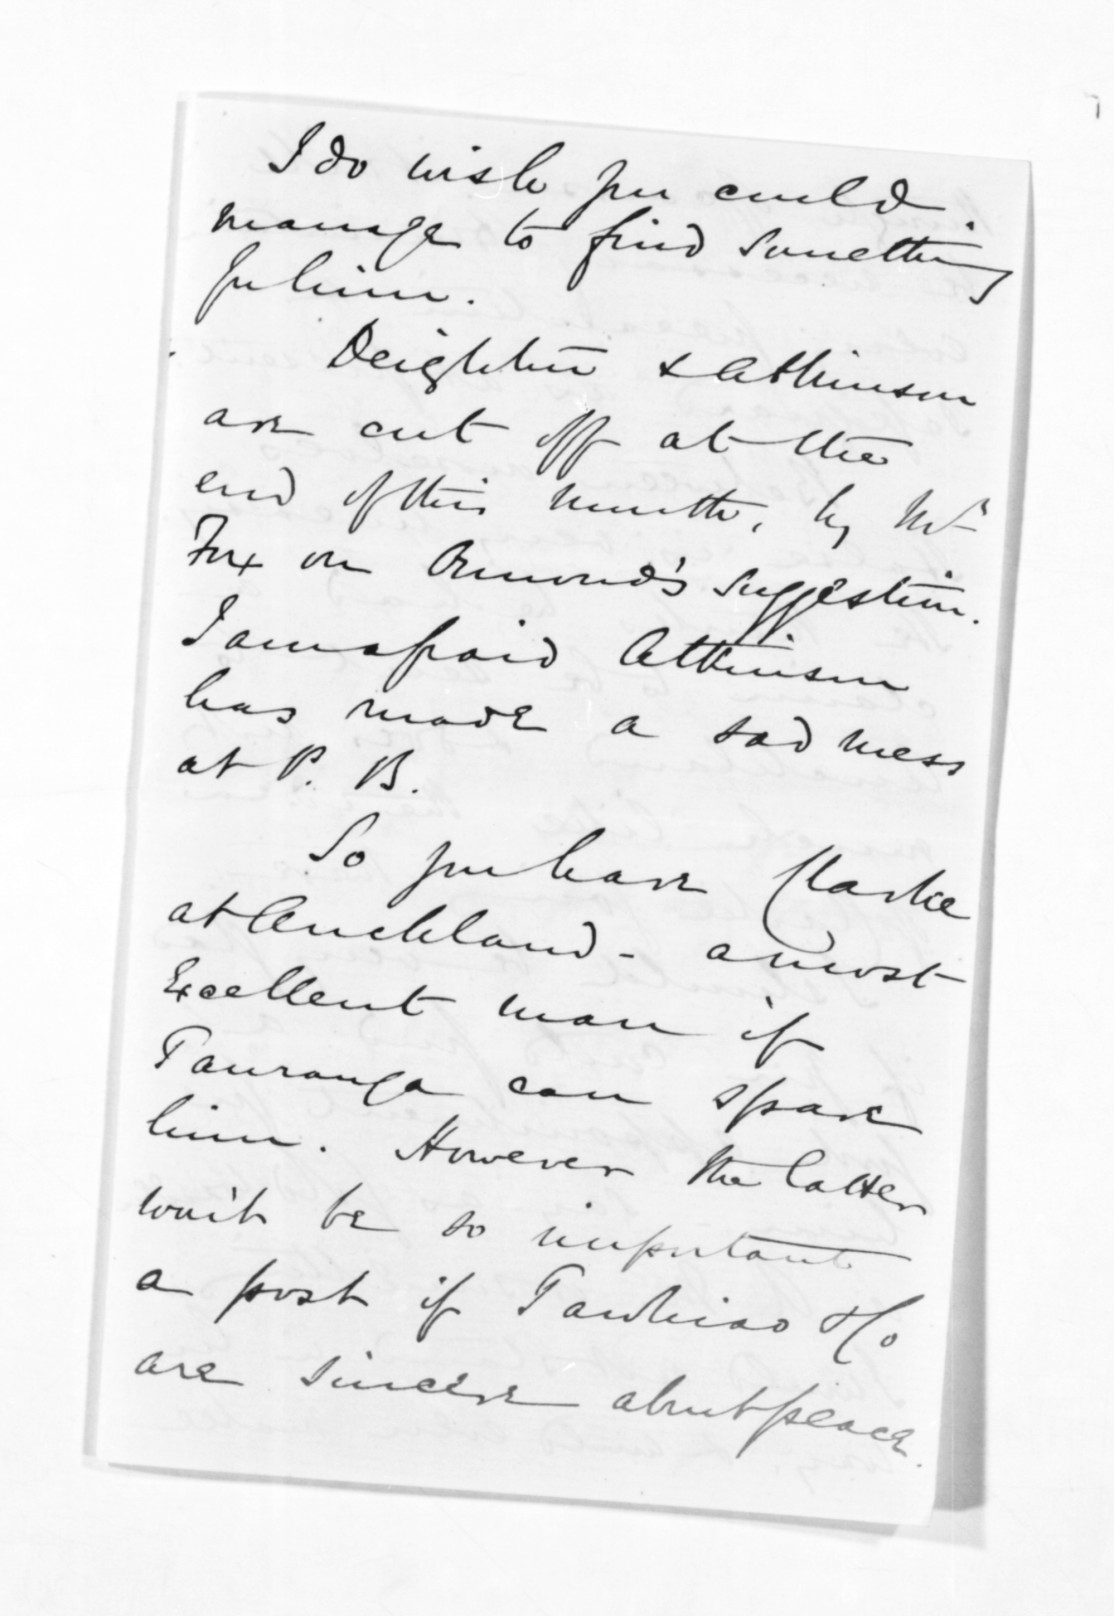 I do wish you could
manage to find something
for him.
Deighton & Atkinson
are cut off at the
end of this month, by Mr
Fox on Ormond's suggestion.
I am afraid Atkinson
has made a sad mess
at P. B.
So you have Clarke
at Auckland - a most
Excellent man if
Tauranga can spare
him. However the latter
won't be so important
a post if Tawhiao & Co
are sincere about peace.